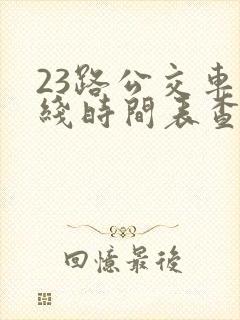 23路公交車
綫時間表查
回憶最後